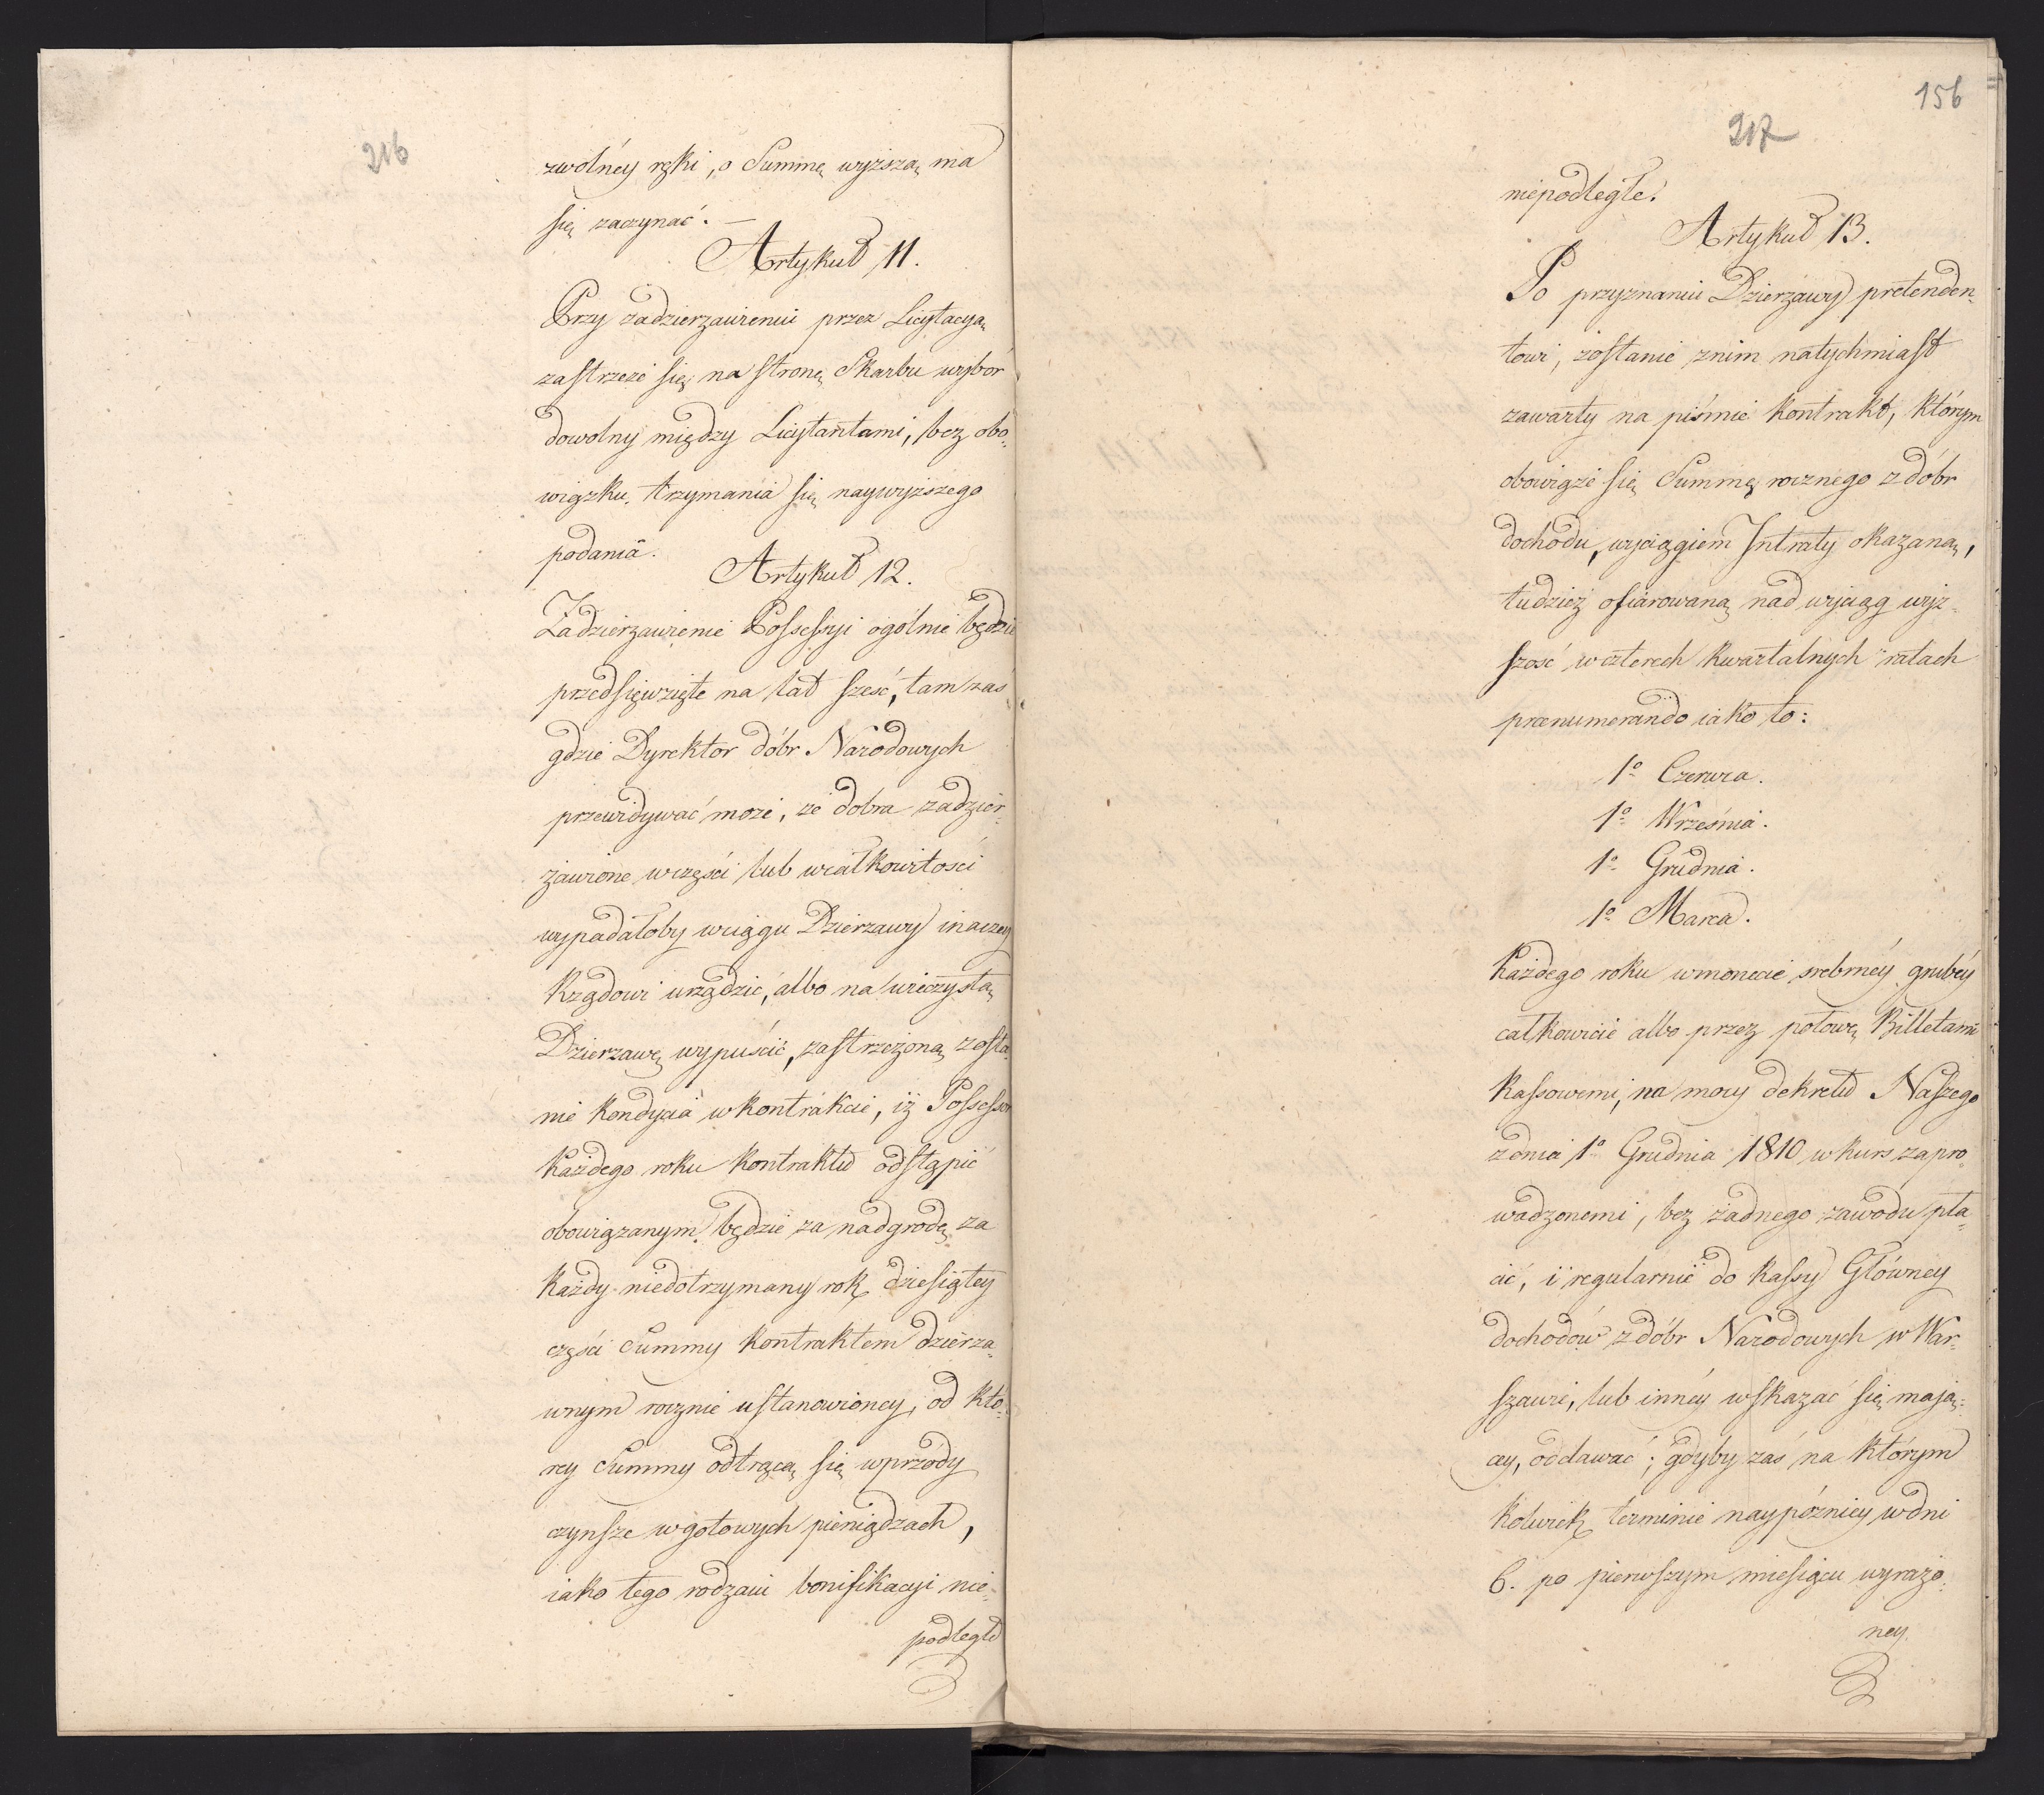 216
zwolnéy ręki, o Summę wyższą ma
się zaczynać. —
Artykuł 11.
Przy zadzierżawieniu przez Licytacyą
zastrzeże się na stronę Skarbu wybór
dowolny między Licytantami, bez obo-
wiązku trzymania się naywyższego
podania.
Artykuł 12.
Zadzierżawienie Possessyi ogólnie będzie
przedsięwzięte na lat sześć, tam zaś
gdzie Dyrektor dóbr Narodowych
przewidywać może, że dobra zadzier-
żawione wczęści lub wcałkowitości
wypadałoby wciągu Dzierżawy inaczey
Rządowi urządzić, albo na wieczystą
Dzierżawę wypuścić, zastrzeżoną zosta-
nie kondycia w kontrakcie, iż Possessor
każdego roku kontraktu odstąpić
obowiązanym będzie za nadgrodę za
każdy niedotrzymany rok dziesiątey
części Summy kontraktem dzierża-
wnym rocznie ustanowioney, od któ-
rey Summy odtrącą się wprzódy
czynsze w gotowych pieniądzach,
iako tego rodzaiu bonifikacyi nie-
podległe
156
217
niepodległe.
Artykuł 13.
Po przyznaniu Dzierżawy pretenden-
towi, zostanie znim natychmiast
zawarty na piśmie kontrakt, którym
obowiąże się Summę rocznego z dóbr
dochodu, wyciągiem Intraty okazaną,
tudzież ofiarowaną nad wyciąg wyż-
szość w czterech kwartalnych ratach
prænumerando iako to:
1o Czerwca.
1o Września.
1o Grudnia.
1o Marca.
każdego roku wmonecie srebrnéy grubéy
całkowicie albo przez połowę Billetami
kassowemi, na mocy dekretu Naszego
zdnia 1o Grudnia 1810 w kurs zapro-
wadzonemi, bez żadnego zawodu pła-
cić, i regularnie do kassy Główney
dochodów z dóbr Narodowych w War-
szawie, lub innéy wskazać się mają-
cey, oddawać; gdyby zaś na którym
kolwiek terminie naypóźniey w dni
6. po pierwszym miesiącu wyrażo-
ney